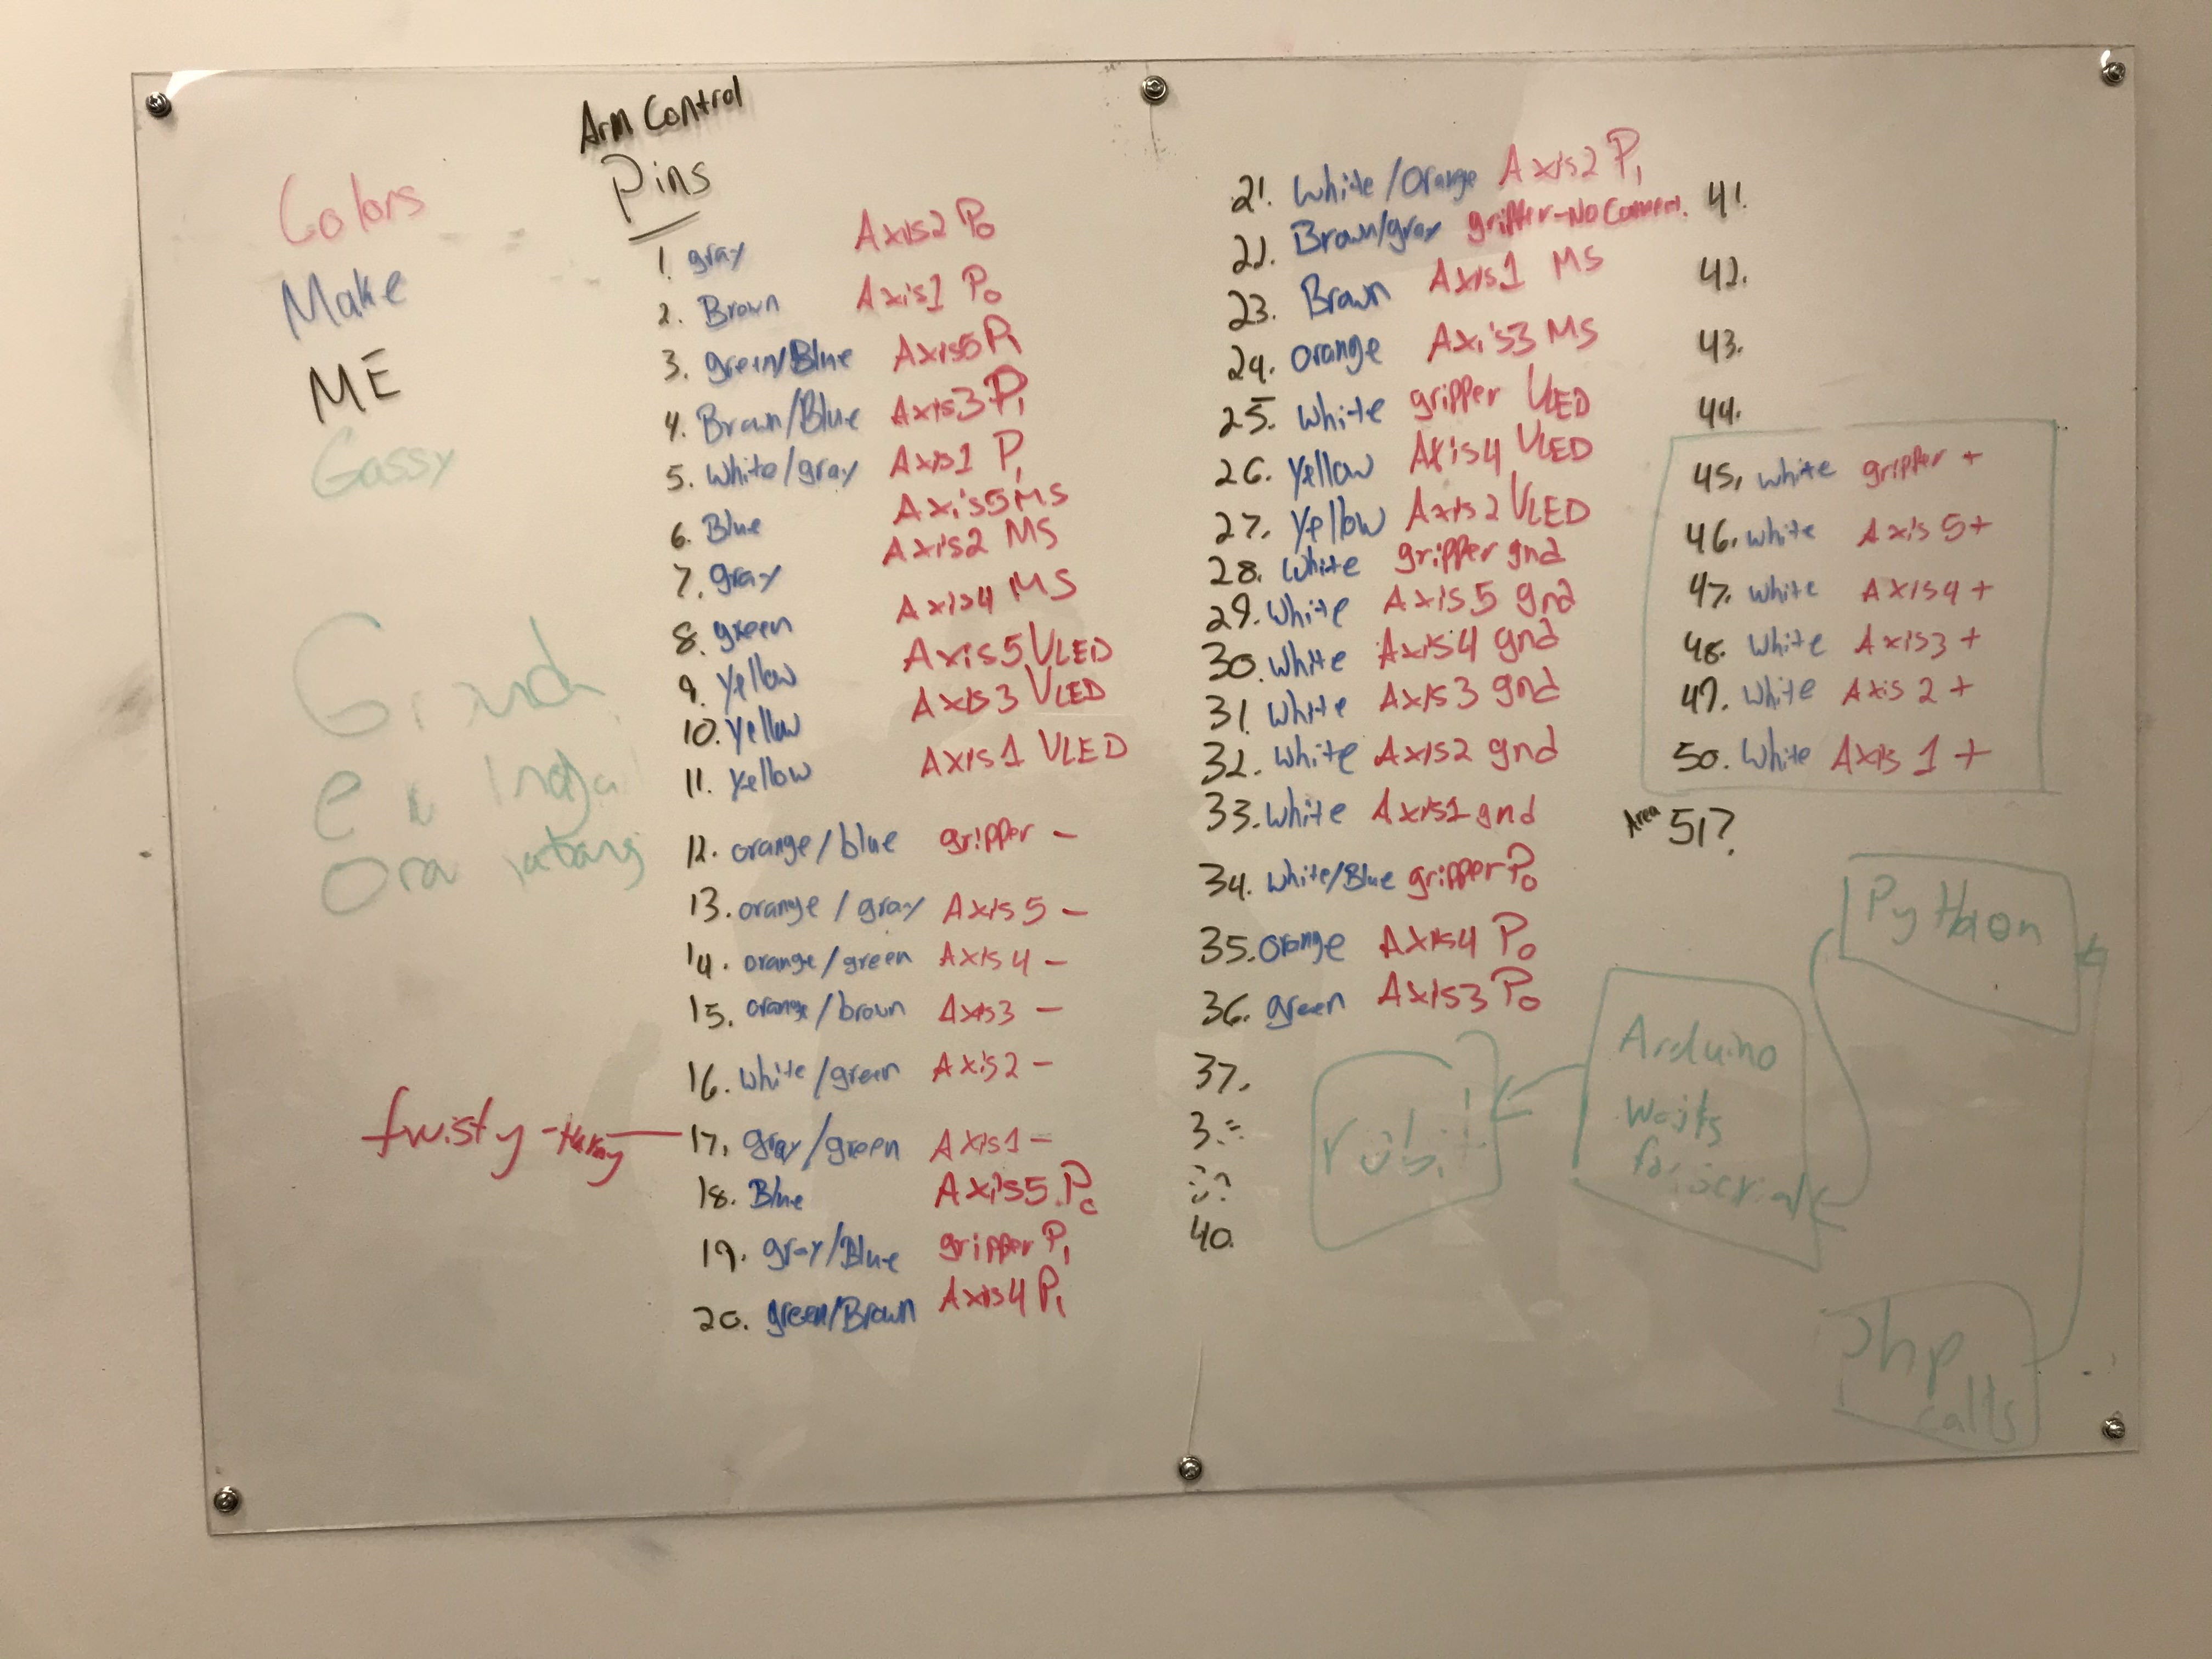 Arm Control
Pins
Colors
Make
ME
Gassy
1. gray Axis2 P0
2. Brown Axis1 P0
3. green/Blue Axis5 P1
4. Brown/Blue Axis3 P1
5. White/gray Axis1 P1
6. Blue Axis5 MS
7. gray Axis2 MS
8. green Axis4 MS
9. Yellow Axis5 VLED
10. Yellow Axis3 VLED
11. Yellow Axis1 VLED
12. orange/blue gripper -
13. orange/gray Axis5 -
14. orange/green Axis4 -
15. orange/brown Axis3 -
16. White/green Axis2 -
17. gray/green Axis1 -
18. Blue Axis5 P0
19. gray/Blue gripper P1
20. green/Brown Axis4 P1
21. White/Orange Axis2 P1
22. Brown/gray gripper-No Connect.
23. Brown Axis1 MS
24. orange Axis3 MS
25. White gripper VLED
26. Yellow Axis4 VLED
27. Yellow Axis2 VLED
28. White gripper gnd
29. White Axis5 gnd
30. White Axis4 gnd
31. White Axis3 gnd
32. White Axis2 gnd
33. White Axis1 gnd
34. White/Blue gripper P0
35. orange Axis4 P0
36. green Axis3 P0
37.
40.
41.
42.
43.
44.
45. White gripper +
46. White Axis 5+
47. White Axis4 +
48. White Axis3 +
49. White Axis 2 +
50. White Axis 1 +
Area 51?
Python
Arduino
Waits
for serial
php
calls